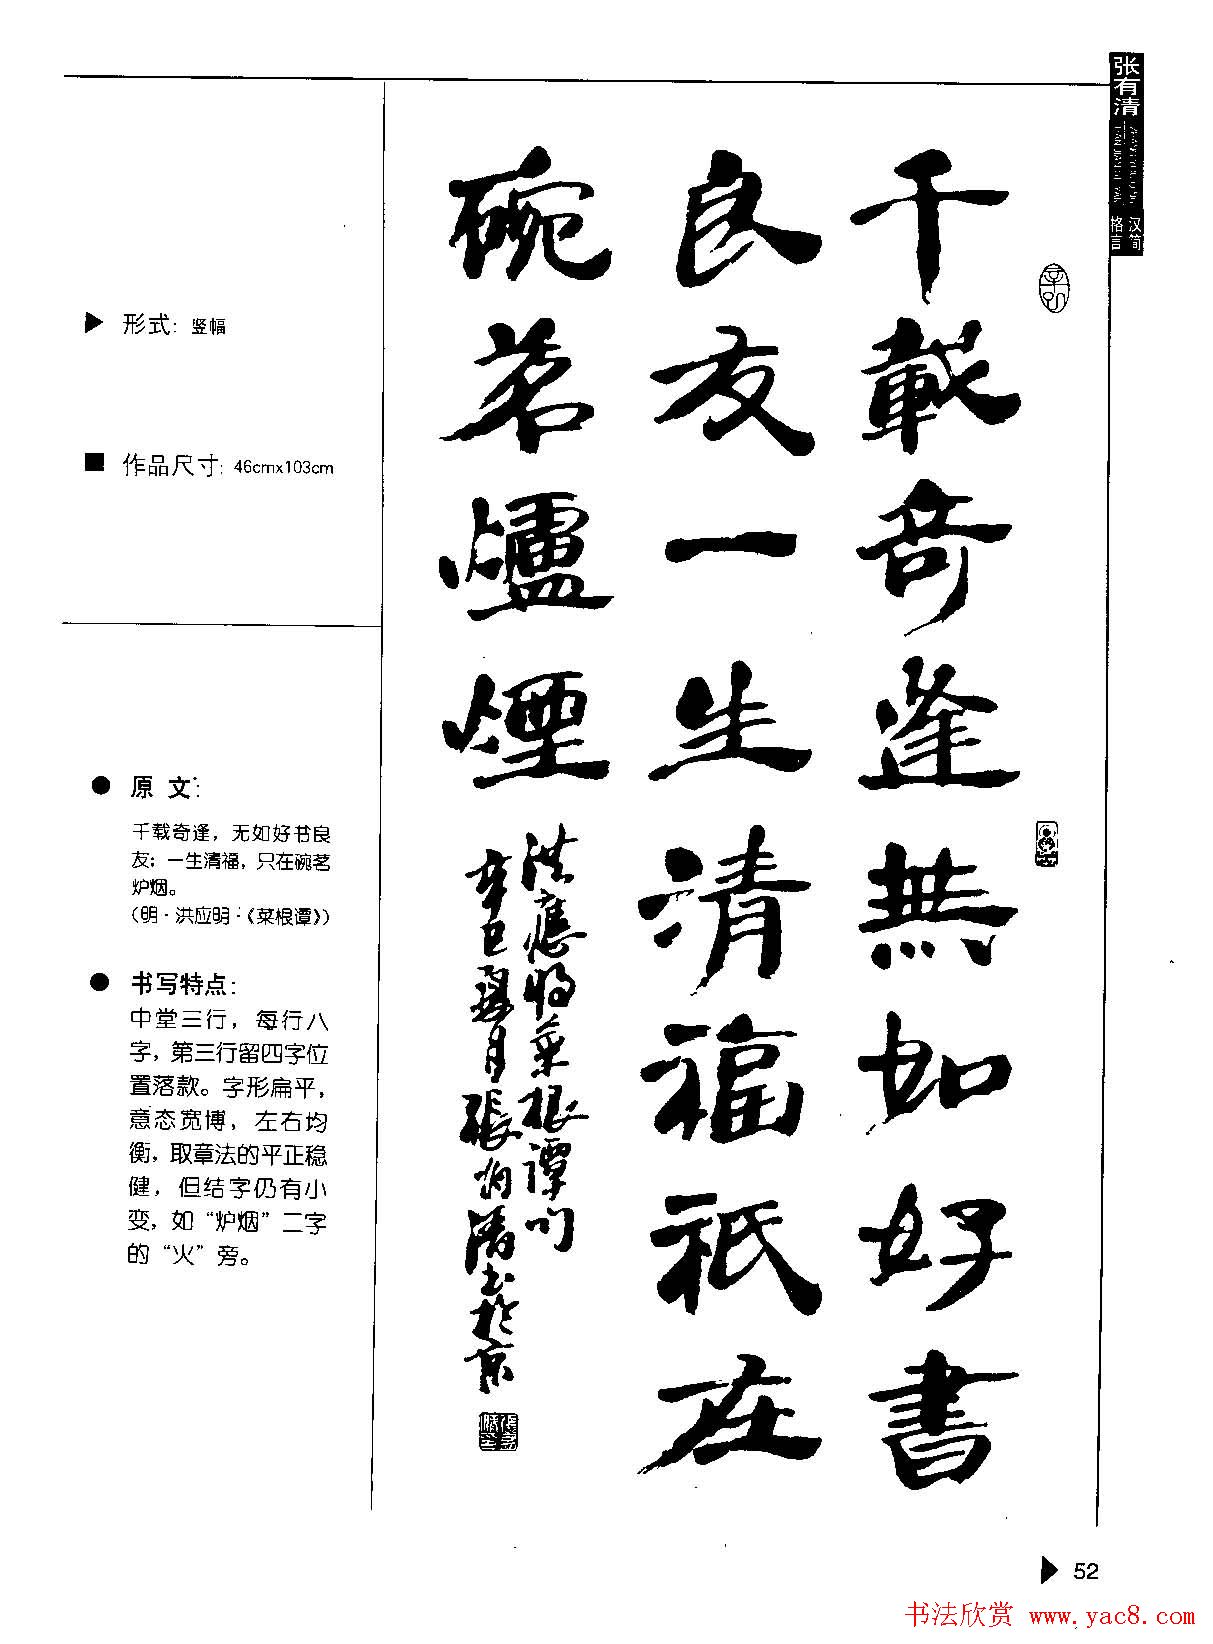 张有清
汉简
格言
千載奇逢無如好書
良友一生清福祇在
碗茗爐煙
洪應明菜根譚句
辛巳夏月張有清書於京
形式：竖幅
作品尺寸：46cmx103cm
原 文：
千载奇逢，无如好书良
友；一生清福，只在碗茗
炉烟。
（明·洪应明：《菜根谭》）
书写特点：
中堂三行，每行八
字，第三行留四字位
置落款。字形扁平，
意态宽博，左右均
衡，取章法的平正稳
健，但结字仍有小
变，如“炉烟”二字
的“火”旁。
52
书法欣赏 www.yac8.com